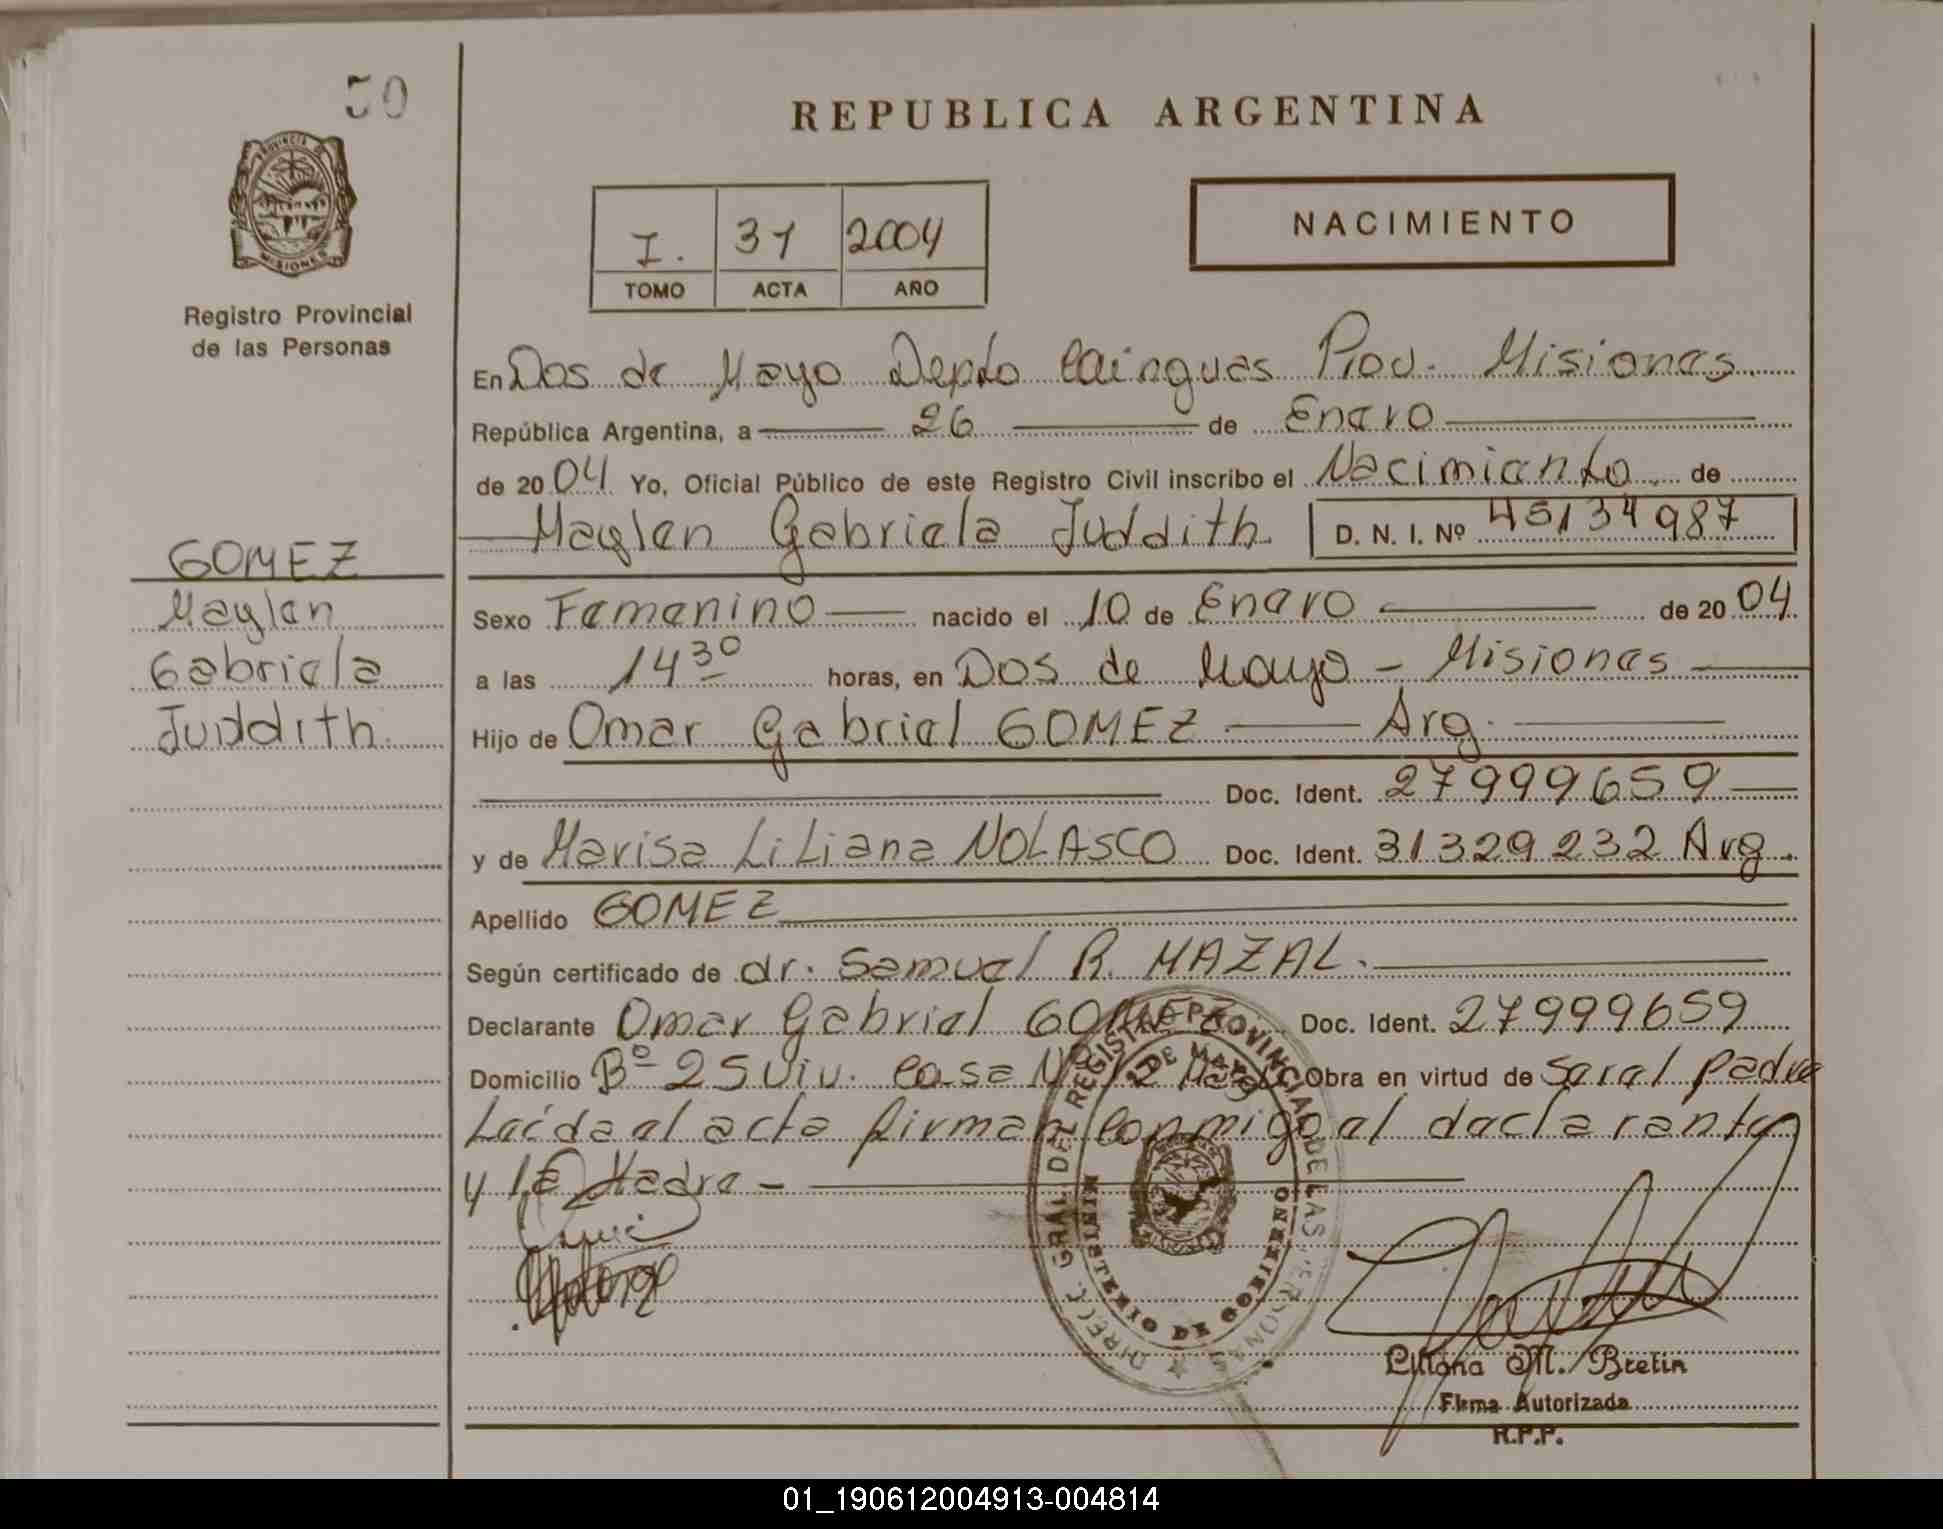 50
REPUBLICA ARGENTINA
PROVINCIA DE MISIONES
Registro Provincial
de las Personas
I. 31 2004
TOMO ACTA AÑO
NACIMIENTO
En Dos de Mayo Depto Cainguas Prov. Misiones.
República Argentina, a 26 de Enero
de 2004 Yo, Oficial Público de este Registro Civil inscribo el Nacimiento de
Maylen Gabriela Juddith D. N. I. Nº 45134987
GOMEZ
Maylen
Gabriela
Juddith.
Sexo Femenino nacido el 10 de Enero de 2004
a las 14 30 horas, en Dos de Mayo - Misiones
Hijo de Omar Gabriel GOMEZ Arg.
Doc. Ident. 27999659
y de Marisa Liliana NOLASCO Doc. Ident. 31329232 Arg.
Apellido GOMEZ
Según certificado de dr. Samuel R. MAZAL.
Declarante Omar Gabriel GOMEZ Doc. Ident. 27999659
Domicilio Bº 25 Viv. Casa Nº 2 Mayo Obra en virtud de Ser el padre
Leída el acta firman conmigo el declarante
y la Madre -
DIRECC. GRAL. DEL REGISTRO PROVINCIAL DE LAS PERSONAS
2 DE MAYO
MINISTERIO DE GOBIERNO
Liliana M. Bretin
Firma Autorizada
R.P.P.
01_190612004913-004814